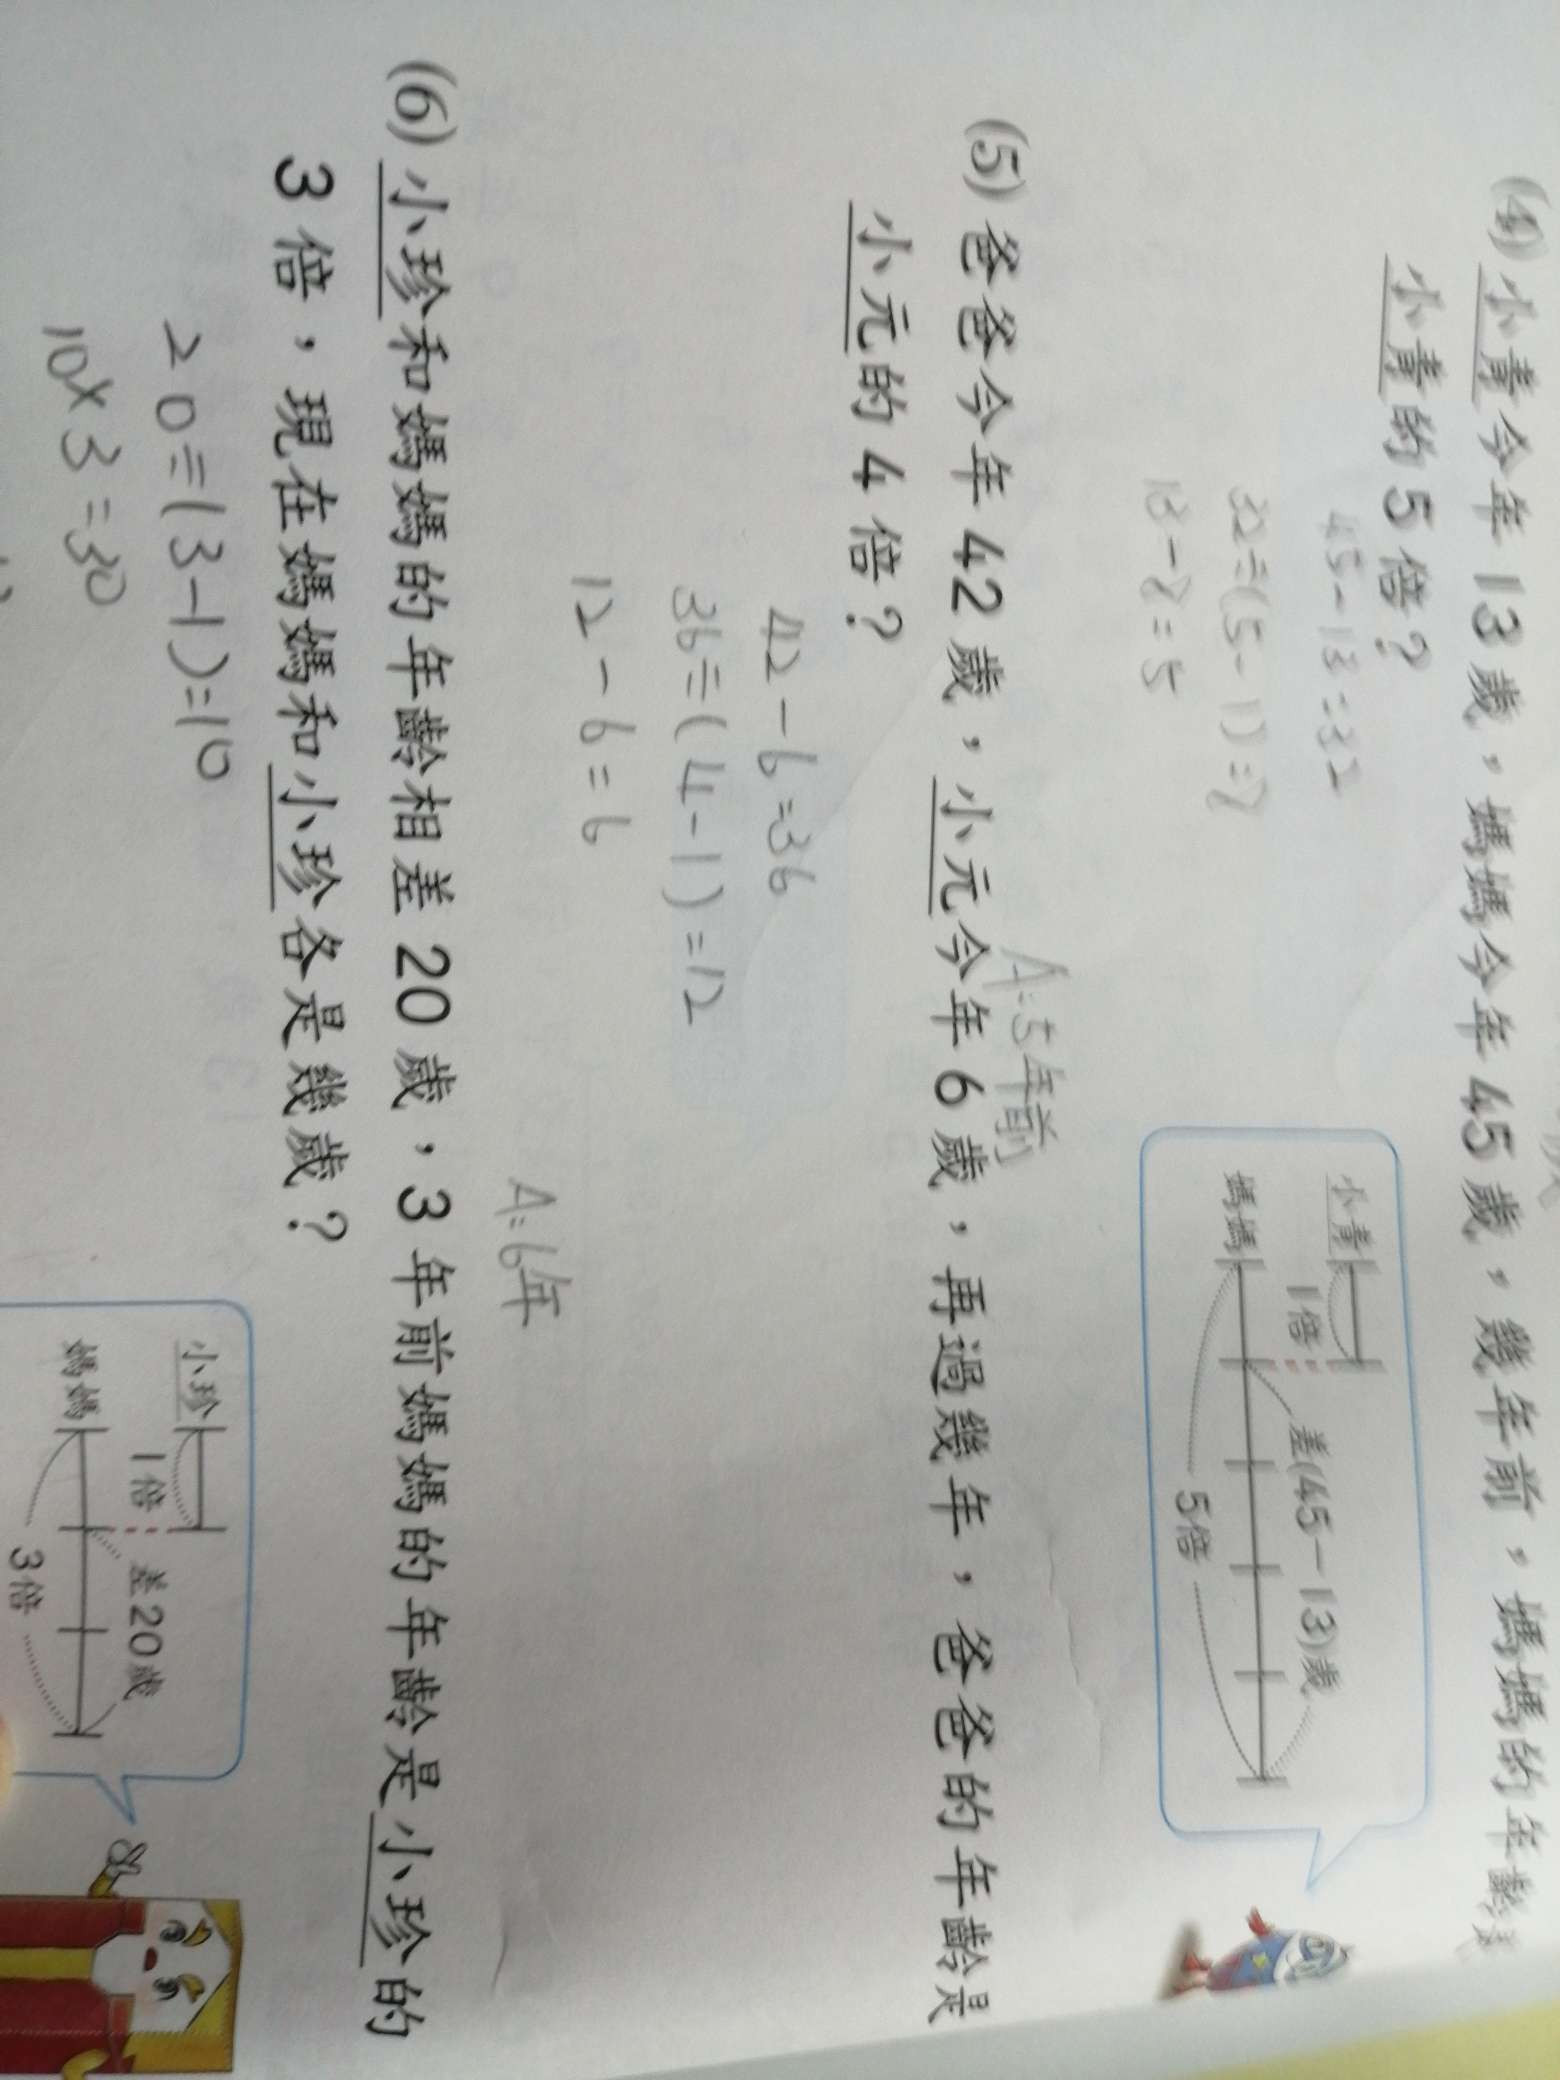 (4) 小青今年13歲，媽媽今年45歲，幾年前，媽媽的年齡是
小青的5倍？
45-13=32
32÷(5-1)=8
13-8=5
A:5年前
小青
1倍
差(45－13)歲
媽媽
5倍
(5) 爸爸今年42歲，小元今年6歲，再過幾年，爸爸的年齡是
小元的4倍？
42-6=36
36÷(4-1)=12
12-6=6
A:6年
(6) 小珍和媽媽的年齡相差20歲，3年前媽媽的年齡是小珍的
3倍，現在媽媽和小珍各是幾歲？
20÷(3-1)=10
10×3=30
小珍
1倍
差20歲
媽媽
3倍